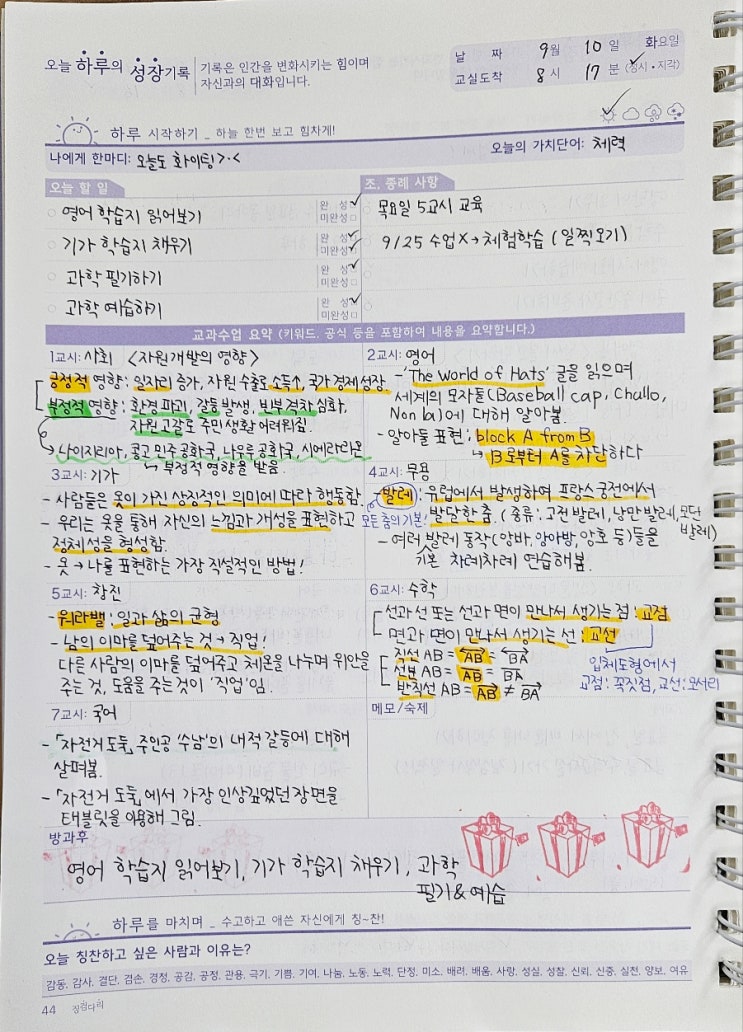 오늘 하루의 성장기록
기록은 인간을 변화시키는 힘이며
자신과의 대화입니다.
날 짜 9월 10일 화요일
교실도착 8시 17분 (정시·지각)
하루 시작하기 _ 하늘 한번 보고 힘차게!
나에게 한마디: 오늘도 화이팅>.<
오늘의 가치단어: 체력
오늘 할 일
영어 학습지 읽어보기 완 성 미완성
기가 학습지 채우기 완 성 미완성
과학 필기하기 완 성 미완성
과학 예습하기 완 성 미완성
조, 종례 사항
목요일 5교시 교육
9/25 수업X→체험학습 (일찍오기)
교과수업 요약 (키워드. 공식 등을 포함하여 내용을 요약합니다.)
1교시: 사회 <자원개발의 영향>
긍정적 영향: 일자리 증가, 자원 수출로 소득↑, 국가 경제 성장
부정적 영향: 환경 파괴, 갈등 발생, 빈부격차 심화,
자원 고갈로 주민 생활 어려워짐.
나이지리아, 콩고 민주 공화국, 나우루 공화국, 시에라리온
↳ 부정적 영향을 받음.
2교시: 영어
-'The World of Hats' 글을 읽으며
세계의 모자들(Baseball cap, Chullo,
Non la)에 대해 알아봄.
- 알아둘 표현: block A from B
↳ B로부터 A를 차단하다
3교시: 기가
- 사람들은 옷이 가진 상징적인 의미에 따라 행동함.
- 우리는 옷을 통해 자신의 느낌과 개성을 표현하고
정체성을 형성함.
- 옷 → 나를 표현하는 가장 직설적인 방법!
4교시: 무용
-발레: 유럽에서 발생하여 프랑스 궁전에서
모든 춤의 기본! 발달한 춤. (종류: 고전 발레, 낭만 발레, 모던 발레)
- 여러 기본 발레 동작(앙바, 앙아방, 앙호 등)들을
차례차례 연습해봄.
5교시: 창진
- 워라밸: 일과 삶의 균형
- 남의 이마를 덮어주는 것 → 직업!
다른 사람의 이마를 덮어주고 체온을 나누며 위안을
주는 것, 도움을 주는 것이 '직업'임.
6교시: 수학
선과 선 또는 선과 면이 만나서 생기는 점: 교점
면과 면이 만나서 생기는 선: 교선
직선 AB = AB = BA
선분 AB = AB = BA
반직선 AB = AB ≠ BA
입체도형에서
교점: 꼭짓점, 교선: 모서리
7교시: 국어
-「자전거 도둑」 주인공 '수남'의 내적 갈등에 대해
살펴봄.
-「자전거 도둑」에서 가장 인상깊었던 장면을
태블릿을 이용해 그림.
메모/숙제
방과후
영어 학습지 읽어보기, 기가 학습지 채우기, 과학
필기&예습
하루를 마치며 _ 수고하고 애쓴 자신에게 칭~찬!
오늘 칭찬하고 싶은 사람과 이유는?
감동, 감사, 결단, 겸손, 경청, 공감, 공정, 관용, 극기, 기쁨, 기여, 나눔, 노동, 노력, 단정, 미소, 배려, 배움, 사랑, 성실, 성찰, 신뢰, 신중, 실천, 양보, 여유
44 징검다리